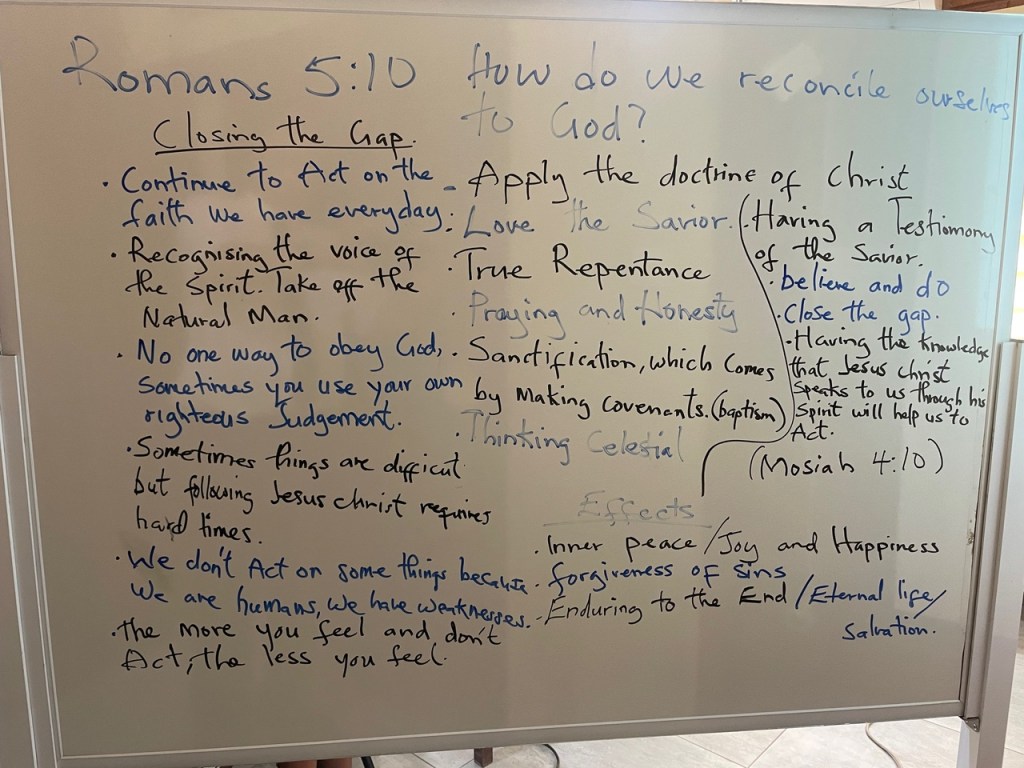 Romans 5:10 How do we reconcile ourselves
to God?
Closing the Gap.
· Continue to Act on the
faith we have everyday.
· Recognising the voice of
the Spirit. Take off the
Natural Man.
· No one way to obey God,
Sometimes you use your own
righteous Judgement.
· Sometimes things are difficut
but following Jesus christ requires
hard times.
· We don't Act on some things because
We are humans, we have weaknesses.
· the more you feel and don't
Act, the less you feel.
- Apply the doctrine of Christ
· Love the Savior.
· True Repentance
· Praying and Honesty
· Sanctification, which comes
by making covenants. (baptism)
· Thinking Celestial
· Having a Testiomony
of the Savior.
· believe and do
· Close the gap.
· Having the knowledge
that Jesus christ
speaks to us through his
Spirit will help us to
Act.
(Mosiah 4:10)
Effects
· Inner peace/Joy and Happiness
· forgiveness of sins
· Enduring to the End/Eternal life/
Salvation.